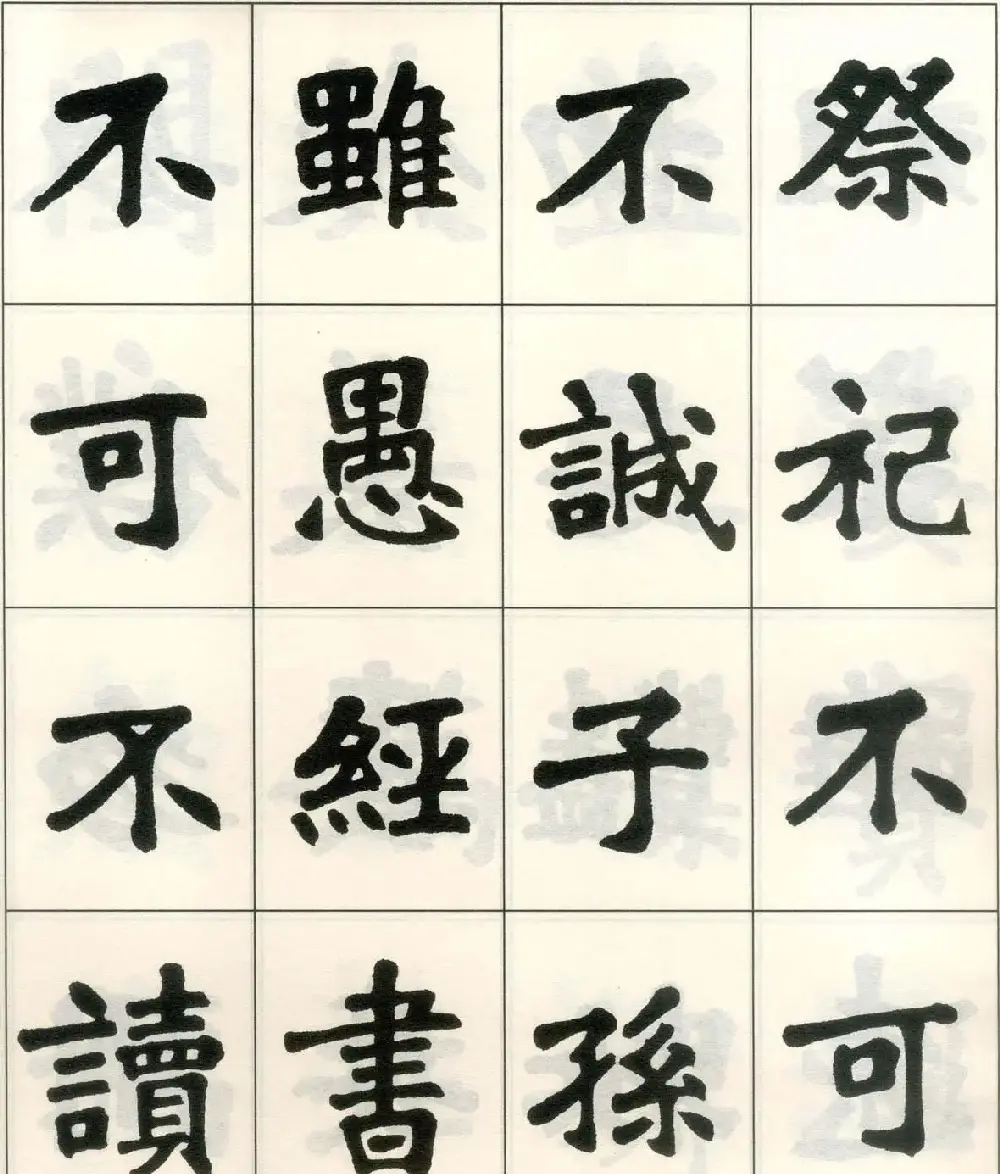 祭祀不可
不誠子孫
雖愚經書
不可不讀